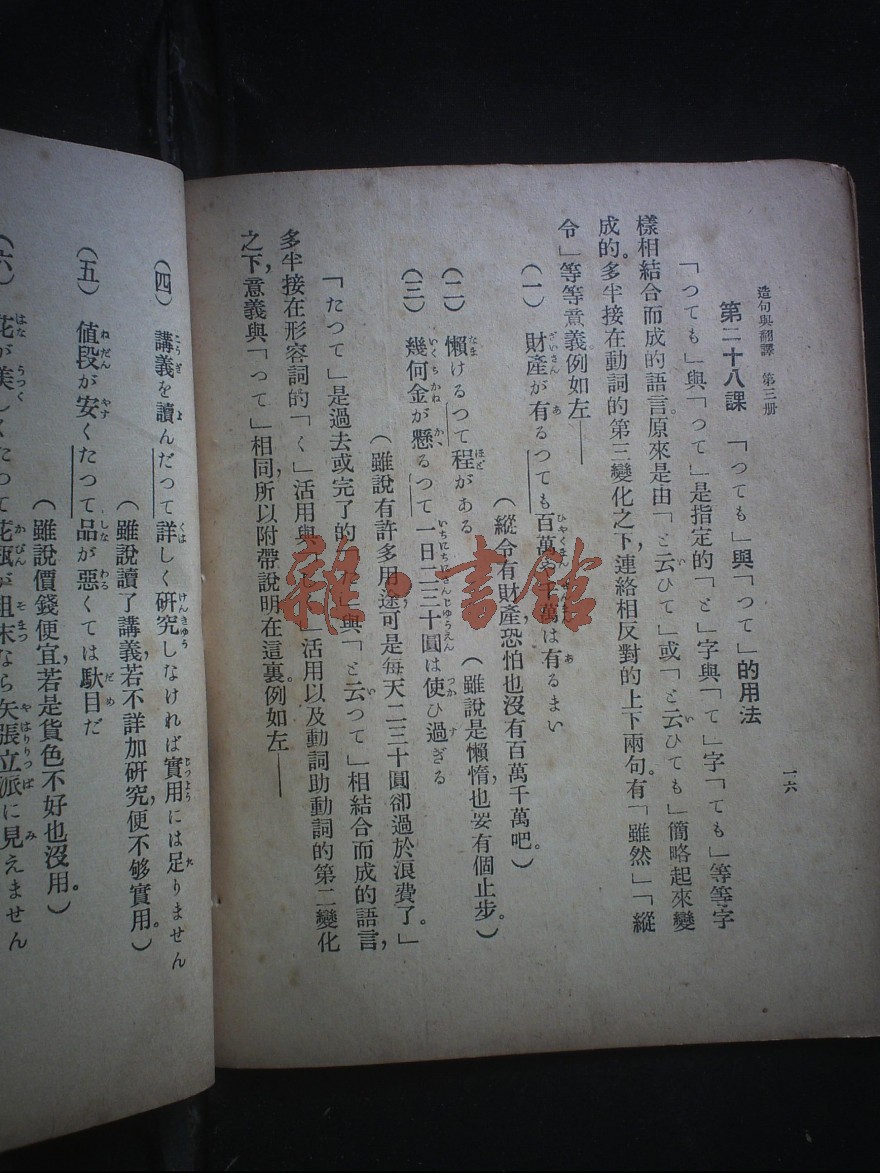 造句與翻譯 第三册
一六
第二十八課 「つても」與「つて」的用法
「つても」與「つて」是指定的「と」字與「て」字「ても」等等字
樣相結合而成的語言。原來是由「と云ひて」或「と云ひても」簡略起來變
成的。多半接在動詞的第三變化之下，連絡相反對的上下兩句。有「雖然」「縱
令」等等意義。例如左——
(一) 財產が有るつても百萬や千萬は有るまい
(縱令有財產，恐怕也沒有百萬千萬吧。)
(二) 懶けるつて程がある
(雖說是懶惰，也要有個止步。)
(三) 幾何金が懸るつて一日二三十圓は使ひ過ぎる
(雖說有許多用途，可是每天二三十圓卻過於浪費了。」
「たつて」是過去或完了的 與「と云つて」相結合而成的語言，
多半接在形容詞的「く」活用與 」活用以及動詞助動詞的第二變化
之下，意義與「つて」相同，所以附帶說明在這裏。例如左——
(四) 講義を讀んだつて詳しく研究しなければ實用には足りません
(雖說讀了講義，若不詳加研究，便不够實用。)
(五) 値段が安くたつて品が惡くては駄目だ
(雖說價錢便宜，若是貨色不好也沒用。)
(六) 花が美しくたつて花瓶が粗末なら矢張立派に見えません
雜·書館